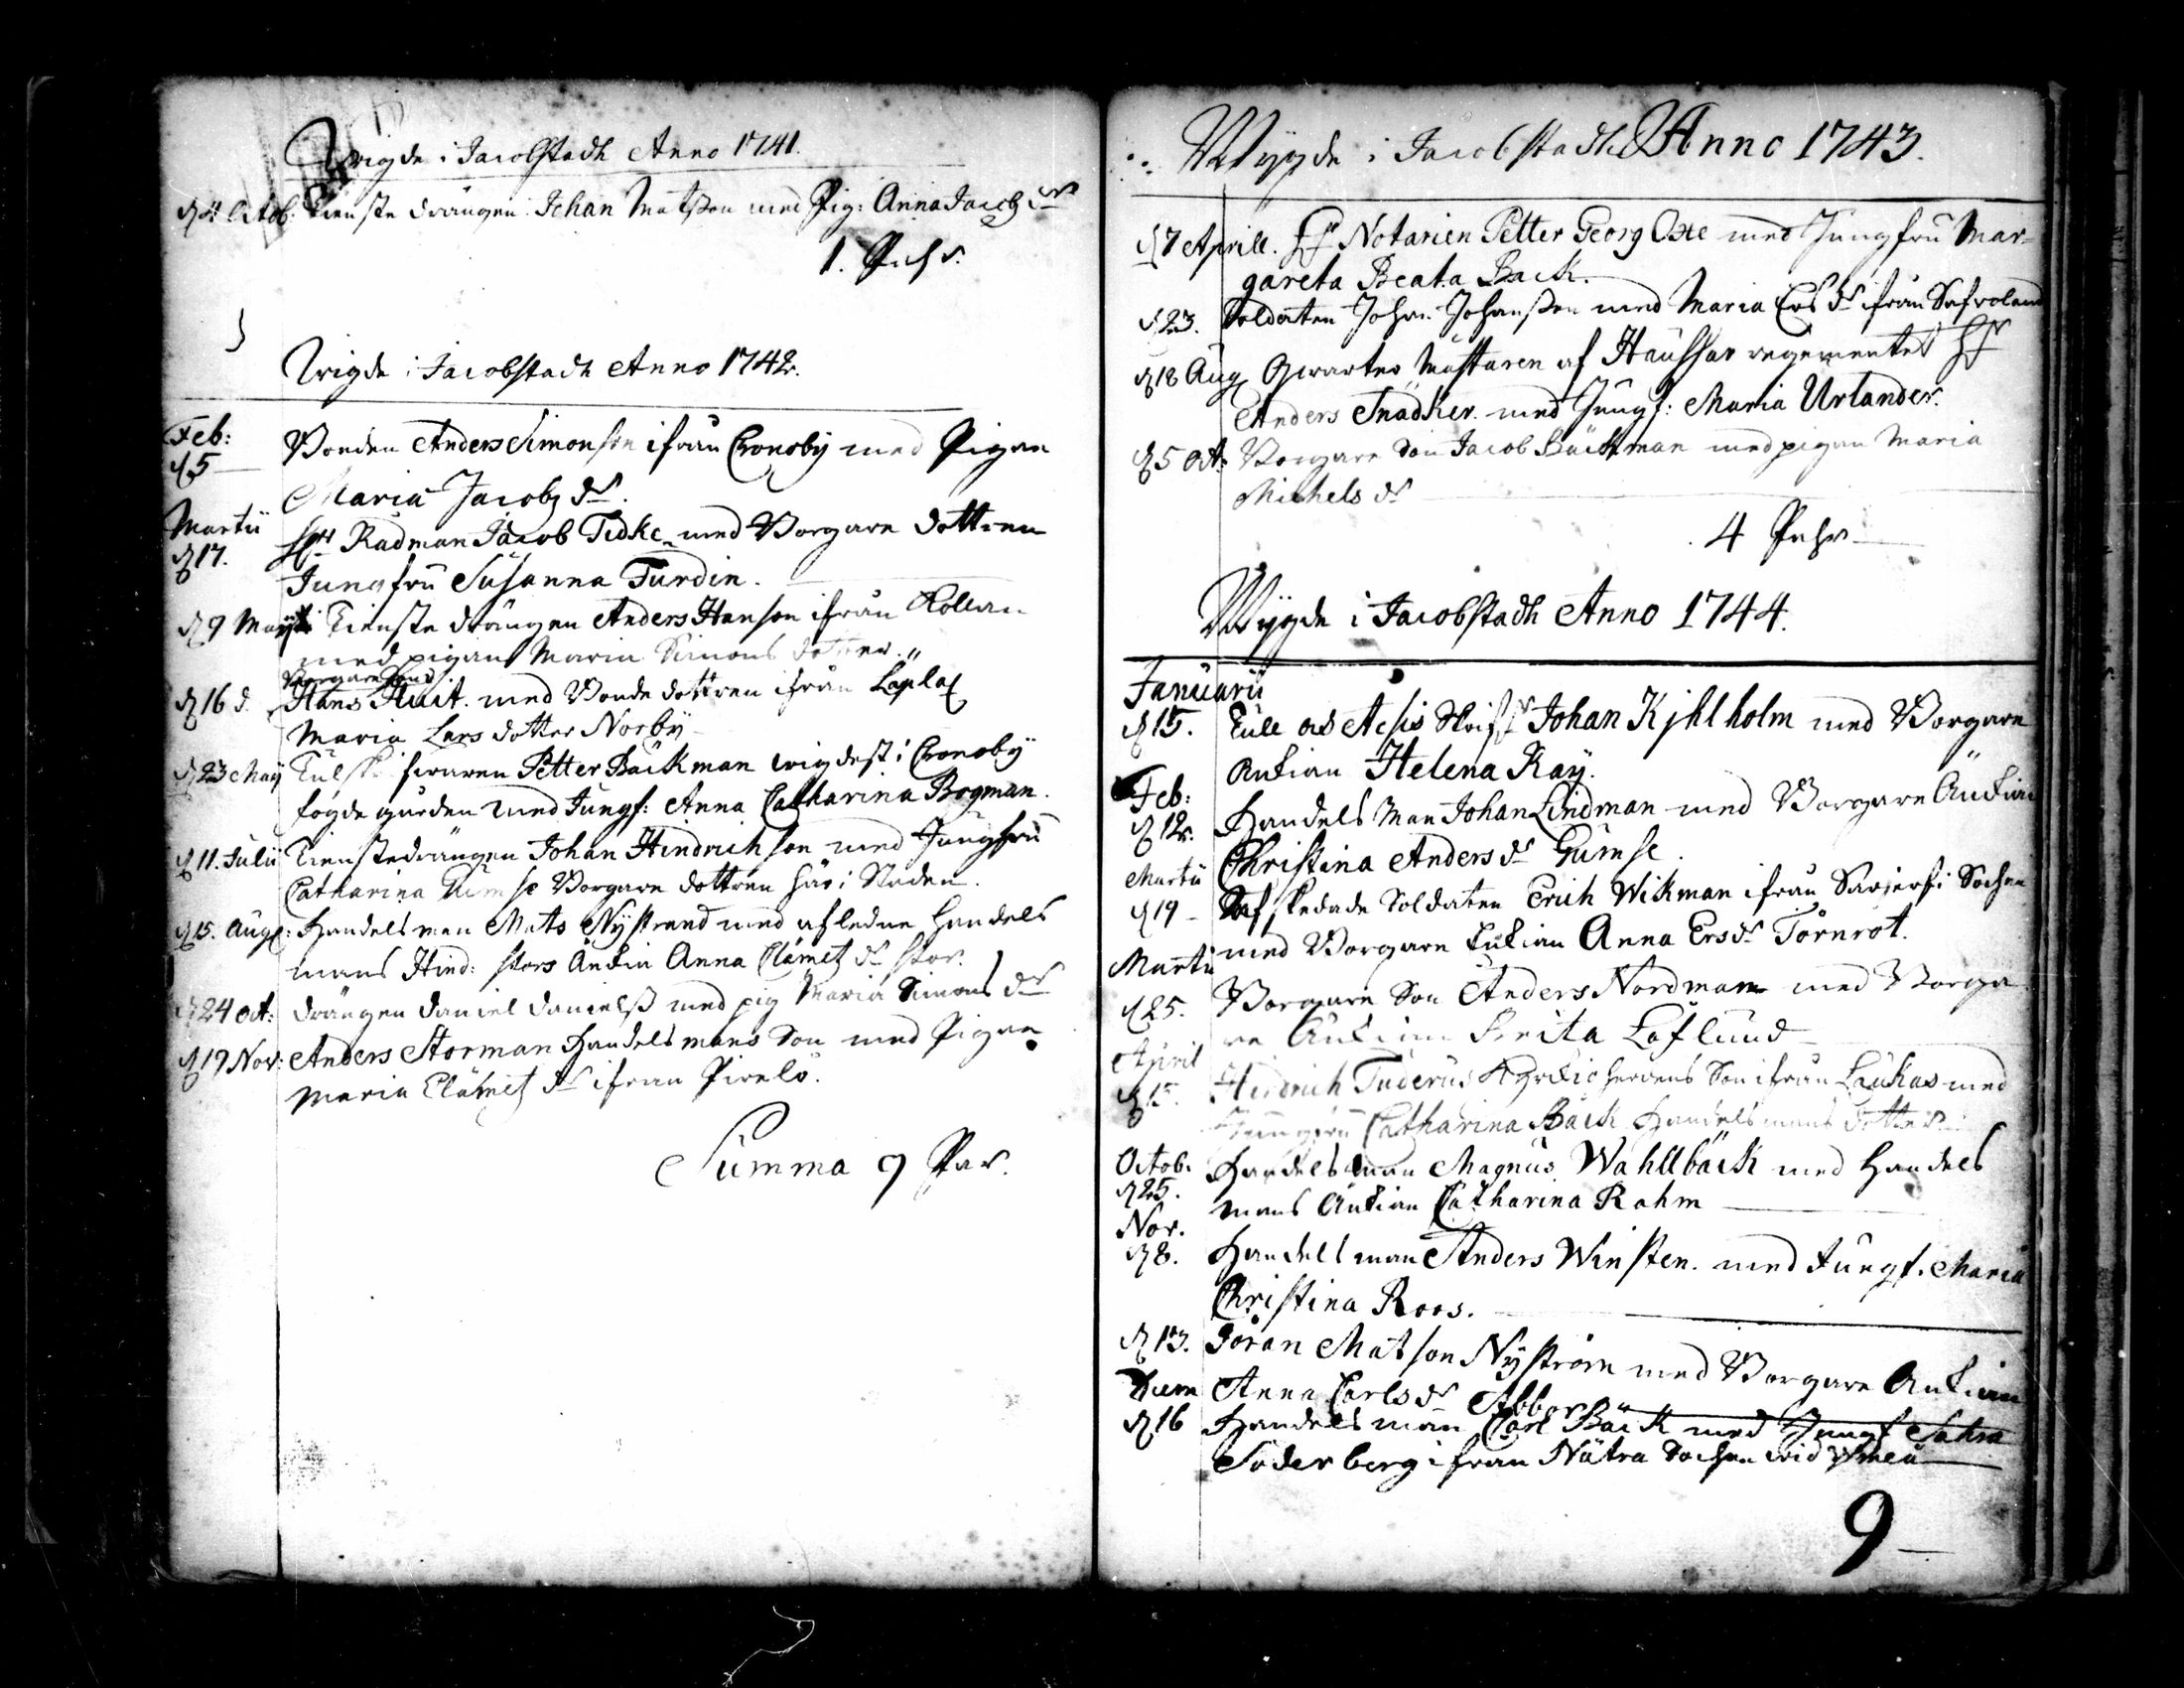 Wigde i Jacobstadh Anno 1741.
d 4 Octob. Tienste drängen Johan Matsson med Pig: Anna Jacobs dr
1. Pahr.
Wigde i Jacobstadh Anno 1742.
Feb:
d 5 Bonden Anders Simonson ifrån Cronoby med Pigan
Maria Jacobs dr.
Martii
d 17. Hr Rådman Jacob Tidke med Borgare dottren
Jungfru Susanna Turdin.
d 9 Maji Tienste drängen Anders Hanson ifrån
med pigan Maria Simons dotter.
Borgare Son
d 16 d. Hans Huit. med Bonde dottren ifrån Laplax
Maria Lars dotter Norby
d 23 Maij Petter Bäckman wigdest i Cronoby
fogde gården med Jungf: Anna Catharina Bogman.
d 11. Julii Tienstedrängen Johan Hindrichson med Jungfru
Catharina Gumse Borgare dottren här i Staden.
d 15. Aug: Handelsman Mats Nystrand med afledne Handels
mans Hind: Stors Änkia Anna Clämets dr Stor.
d 24 oct: drängen Daniel Danielss med pig Maria Simons dr
d 19 Nov: Anders Storman Handelsmans Son med Pigan
Maria Clämets dr ifrån Pirelö.
Summa 9 Par.
Wÿgde i Jacobstadh Anno 1743.
d 7 Aprill. Hr Notarien Petter Georg Oxe med Jungfru Mar-
gareta Beata Back.
d 23. Soldaten Johan Johansson med Maria Ers dr ifrån
d 18 Aug Qwarter Mästaren af Haussar regementet Hr
Anders Snädker. med Jungf: Maria Urlander.
d 5 oct: Borgare Son Jacob Bäckman med pigan Maria
Michels dr
4 Pahr
Wÿgde i Jacobstadh Anno 1744.
Januarii
d 15. Tull och Acsis Skrif Johan Kjhlholm med Borgare
änkian Helena Kaÿ.
Feb:
d 12. Handels Man Johan Lindman med Borgare Änkian
Christina Anders dr Gumse.
Martii
d 19 Afskedade Soldaten Erich Wikman ifrån Sochen
med Borgare Enkian Anna Ers dr Törnrot.
Martii
d 25. Borgare Son Anders Nordman med Borga
re Änkian Brita Loflund
April
d 15. Hindrich Tuderus Kyrkioherdens Son ifrån Laukas med
Jungfru Catharina Bäck Handelsmans dotter
Octob.
d 25. Handelsman Magnus Wahllbäck med Handels
mans Änkian Catharina Rahm
Nov.
d 8. Handelsman Anders Winsten. med Jungf. Maria
Christina Roos.
d 13. Jöran Matson Nÿström med Borgare Änkian
Anna Carls dr Abbor
d 16 Handelsman Carl Bäck med Jungf Sahra
Söderberg ifrån Nätra Sochen wid Umeå
9